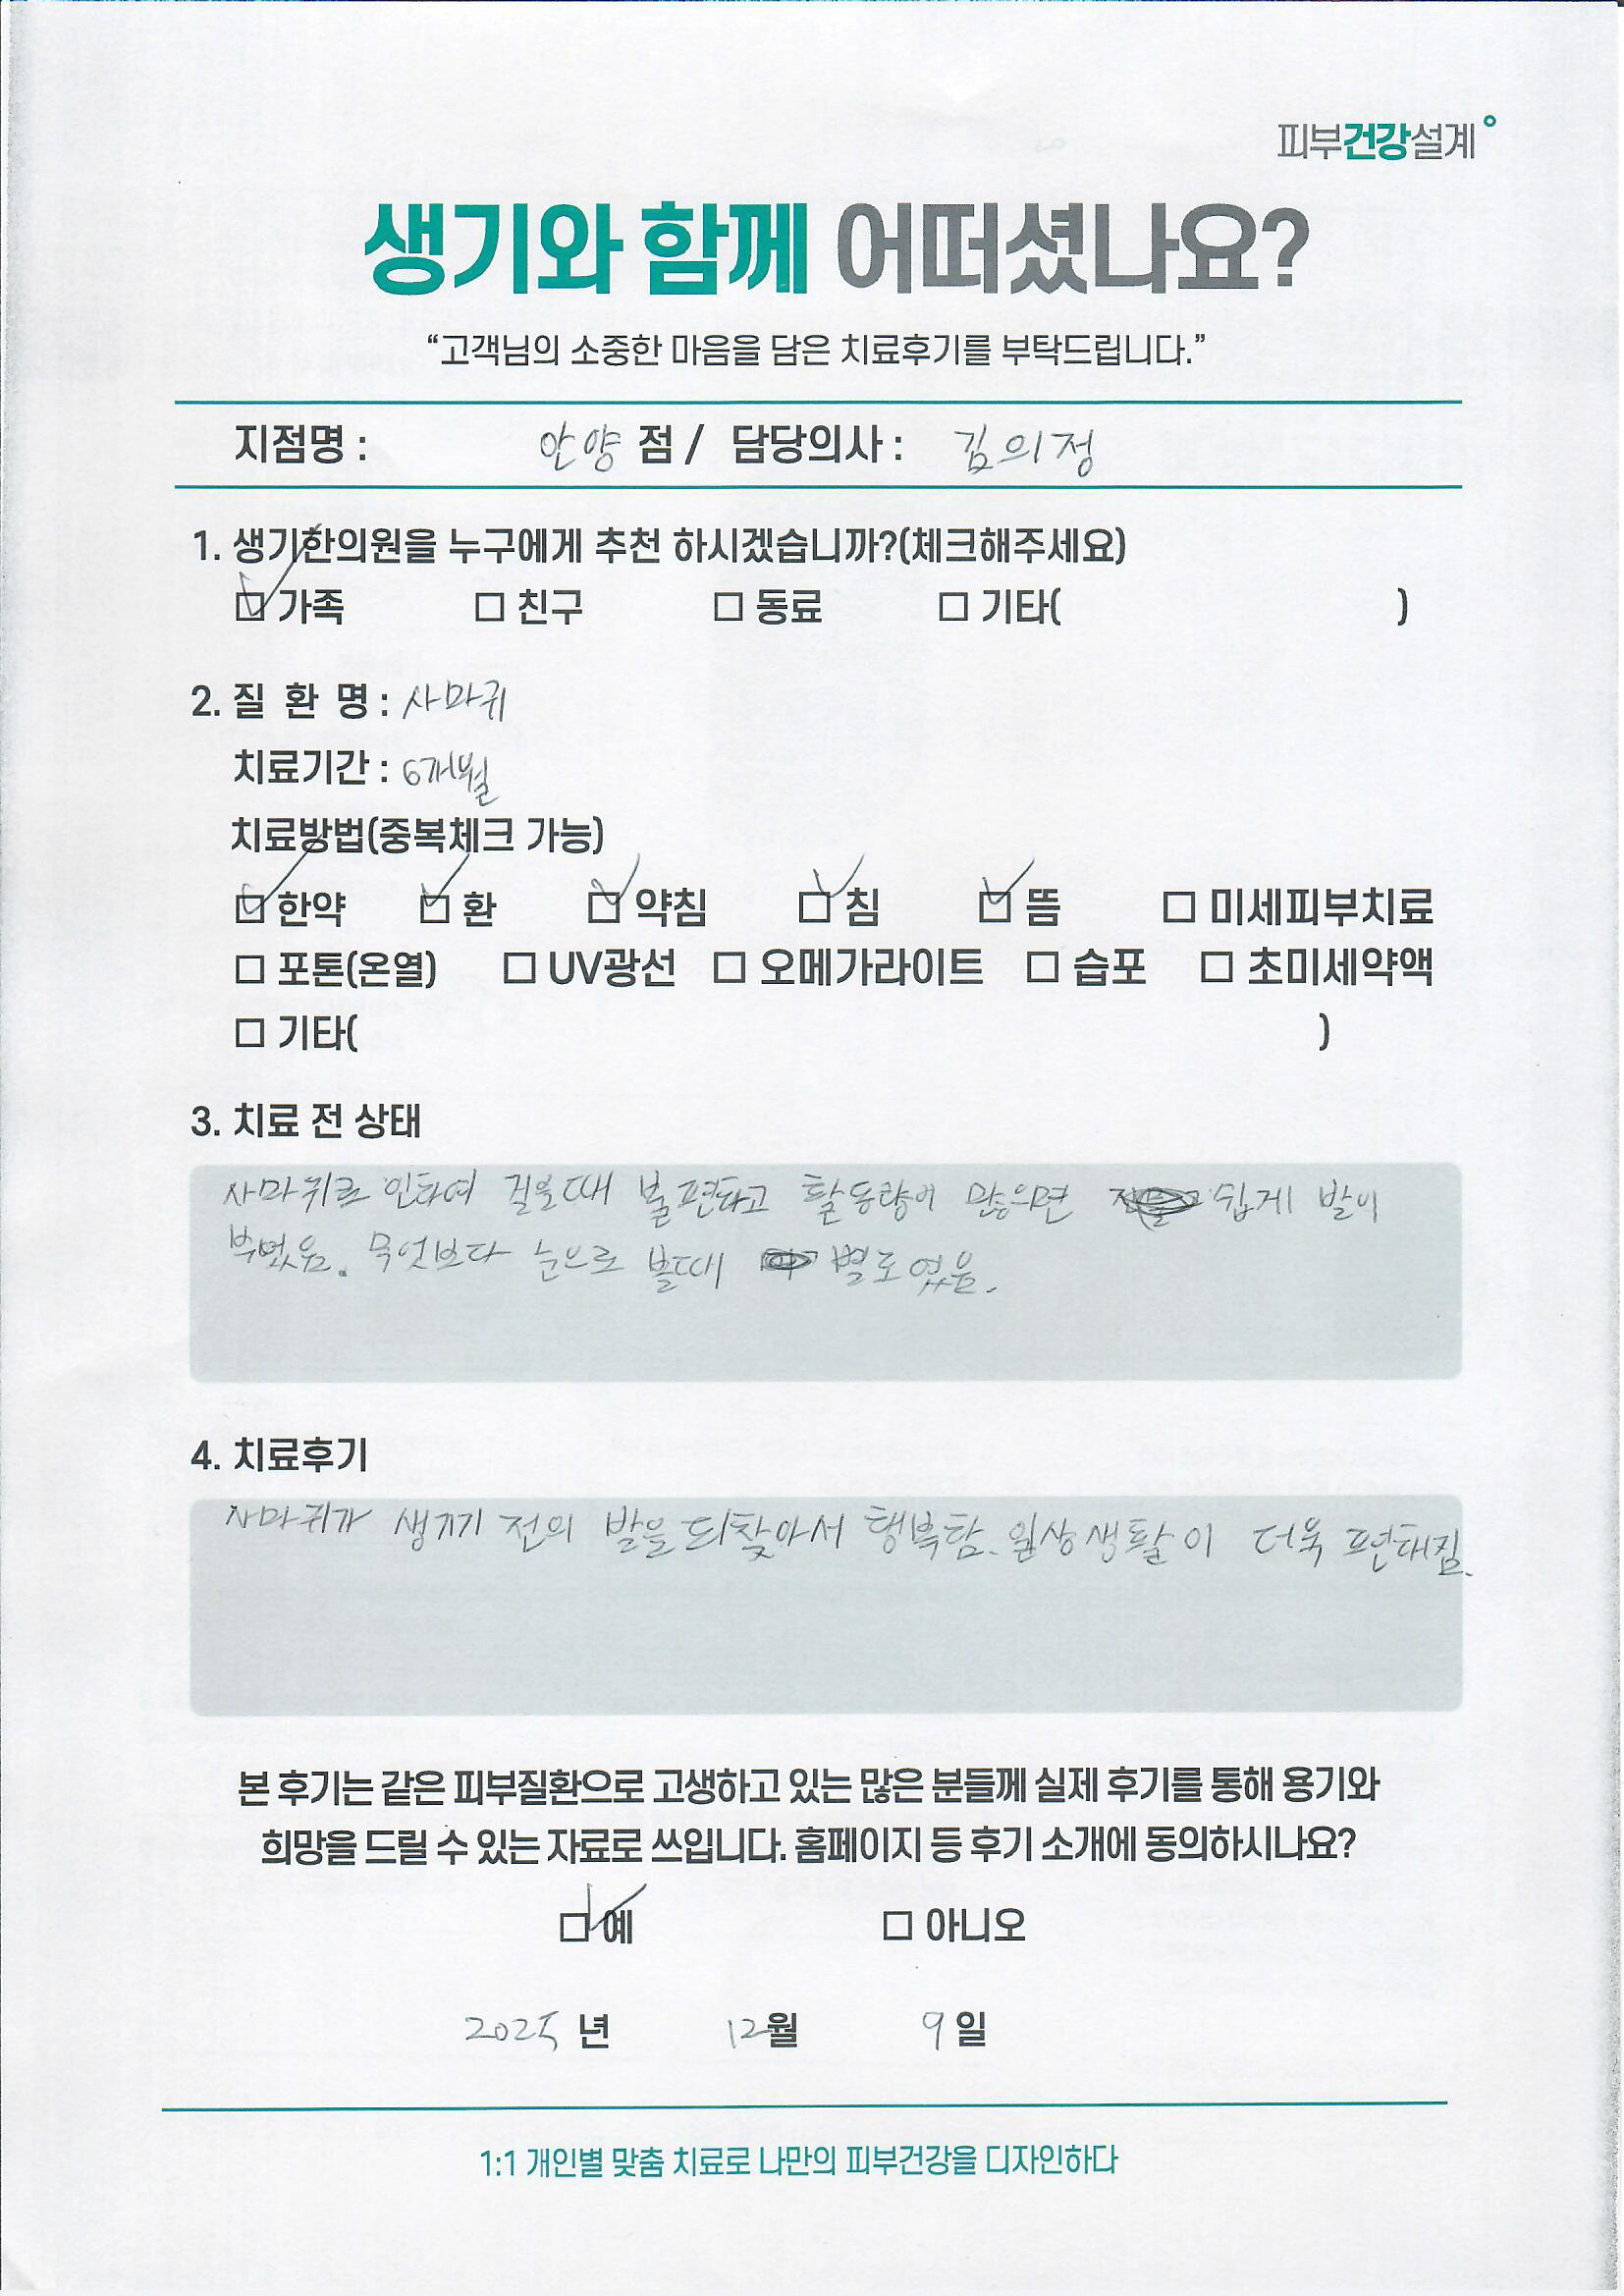 피부건강설계
생기와 함께 어떠셨나요?
“고객님의 소중한 마음을 담은 치료후기를 부탁드립니다.”
지점명 : 안양 점 / 담당의사 : 김의정
1. 생기한의원을 누구에게 추천 하시겠습니까?(체크해주세요)
☑ 가족 □ 친구 □ 동료 □ 기타( )
2. 질 환 명 : 사마귀
치료기간 : 6개월
치료방법(중복체크 가능)
☑ 한약 ☑ 환 ☑ 약침 ☑ 침 ☑ 뜸 □ 미세피부치료
□ 포톤(온열) □ UV광선 □ 오메가라이트 □ 습포 □ 초미세약액
□ 기타( )
3. 치료 전 상태
사마귀로 인하여 걸을때 불편하고 활동량이 많으면 쉽게 발이
부었음. 무엇보다 눈으로 볼때 별로였음.
4. 치료후기
사마귀가 생기기 전의 발을 되찾아서 행복함. 일상생활이 더욱 편해짐.
본 후기는 같은 피부질환으로 고생하고 있는 많은 분들께 실제 후기를 통해 용기와
희망을 드릴 수 있는 자료로 쓰입니다. 홈페이지 등 후기 소개에 동의하시나요?
☑ 예 □ 아니오
2025 년 12월 9일
1:1 개인별 맞춤 치료로 나만의 피부건강을 디자인하다